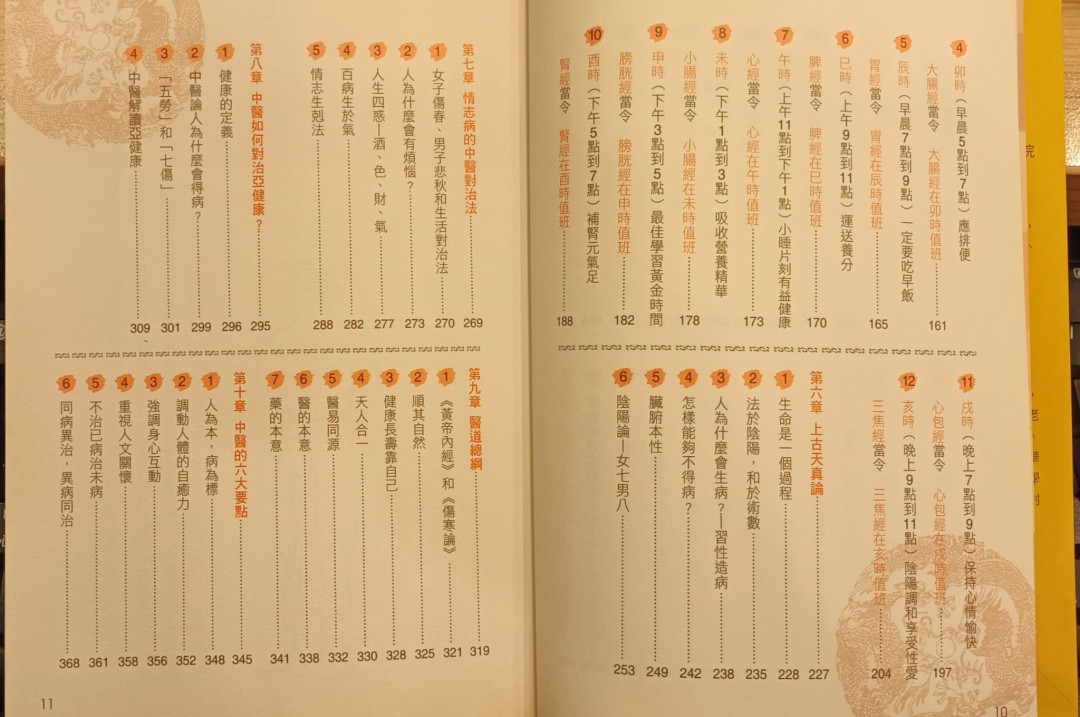 4 卯時（早晨5點到7點）應排便
大腸經當令　大腸經在卯時值班……161
5 辰時（早晨7點到9點）一定要吃早飯
胃經當令　胃經在辰時值班……165
6 巳時（上午9點到11點）運送養分
脾經當令　脾經在巳時值班……170
7 午時（上午11點到下午1點）小睡片刻有益健康
心經當令　心經在午時值班……173
8 未時（下午1點到3點）吸收營養精華
小腸經當令　小腸經在未時值班……178
9 申時（下午3點到5點）最佳學習黃金時間
膀胱經當令　膀胱經在申時值班……182
10 酉時（下午5點到7點）補腎元氣足
腎經當令　腎經在酉時值班……188
11 戌時（晚上7點到9點）保持心情愉快
心包經當令　心包經在戌時值班……197
12 亥時（晚上9點到11點）陰陽調和享受性愛
三焦經當令　三焦經在亥時值班……204
第六章 上古天真論……227
1 生命是一個過程……228
2 法於陰陽，和於術數……235
3 人為什麼會生病？—習性造病……238
4 怎樣能夠不得病？……242
5 臟腑本性……249
6 陰陽論—女七男八……253
10
第七章 情志病的中醫對治法……269
1 女子傷春、男子悲秋和生活對治法……270
2 人為什麼會有煩惱？……273
3 人生四惑—酒、色、財、氣……277
4 百病生於氣……282
5 情志生剋法……288
第八章 中醫如何對治亞健康？……295
1 健康的定義……296
2 中醫論人為什麼會得病？……299
3 「五勞」和「七傷」……301
4 中醫解讀亞健康……309
第九章 醫道總綱……319
1 《黃帝內經》和《傷寒論》……321
2 順其自然……325
3 健康長壽靠自己……328
4 天人合一……330
5 醫易同源……332
6 醫的本意……338
7 藥的本意……341
第十章 中醫的六大要點……345
1 人為本，病為標……348
2 調動人體的自癒力……352
3 強調身心互動……356
4 重視人文關懷……358
5 不治已病治未病……361
6 同病異治，異病同治……368
11